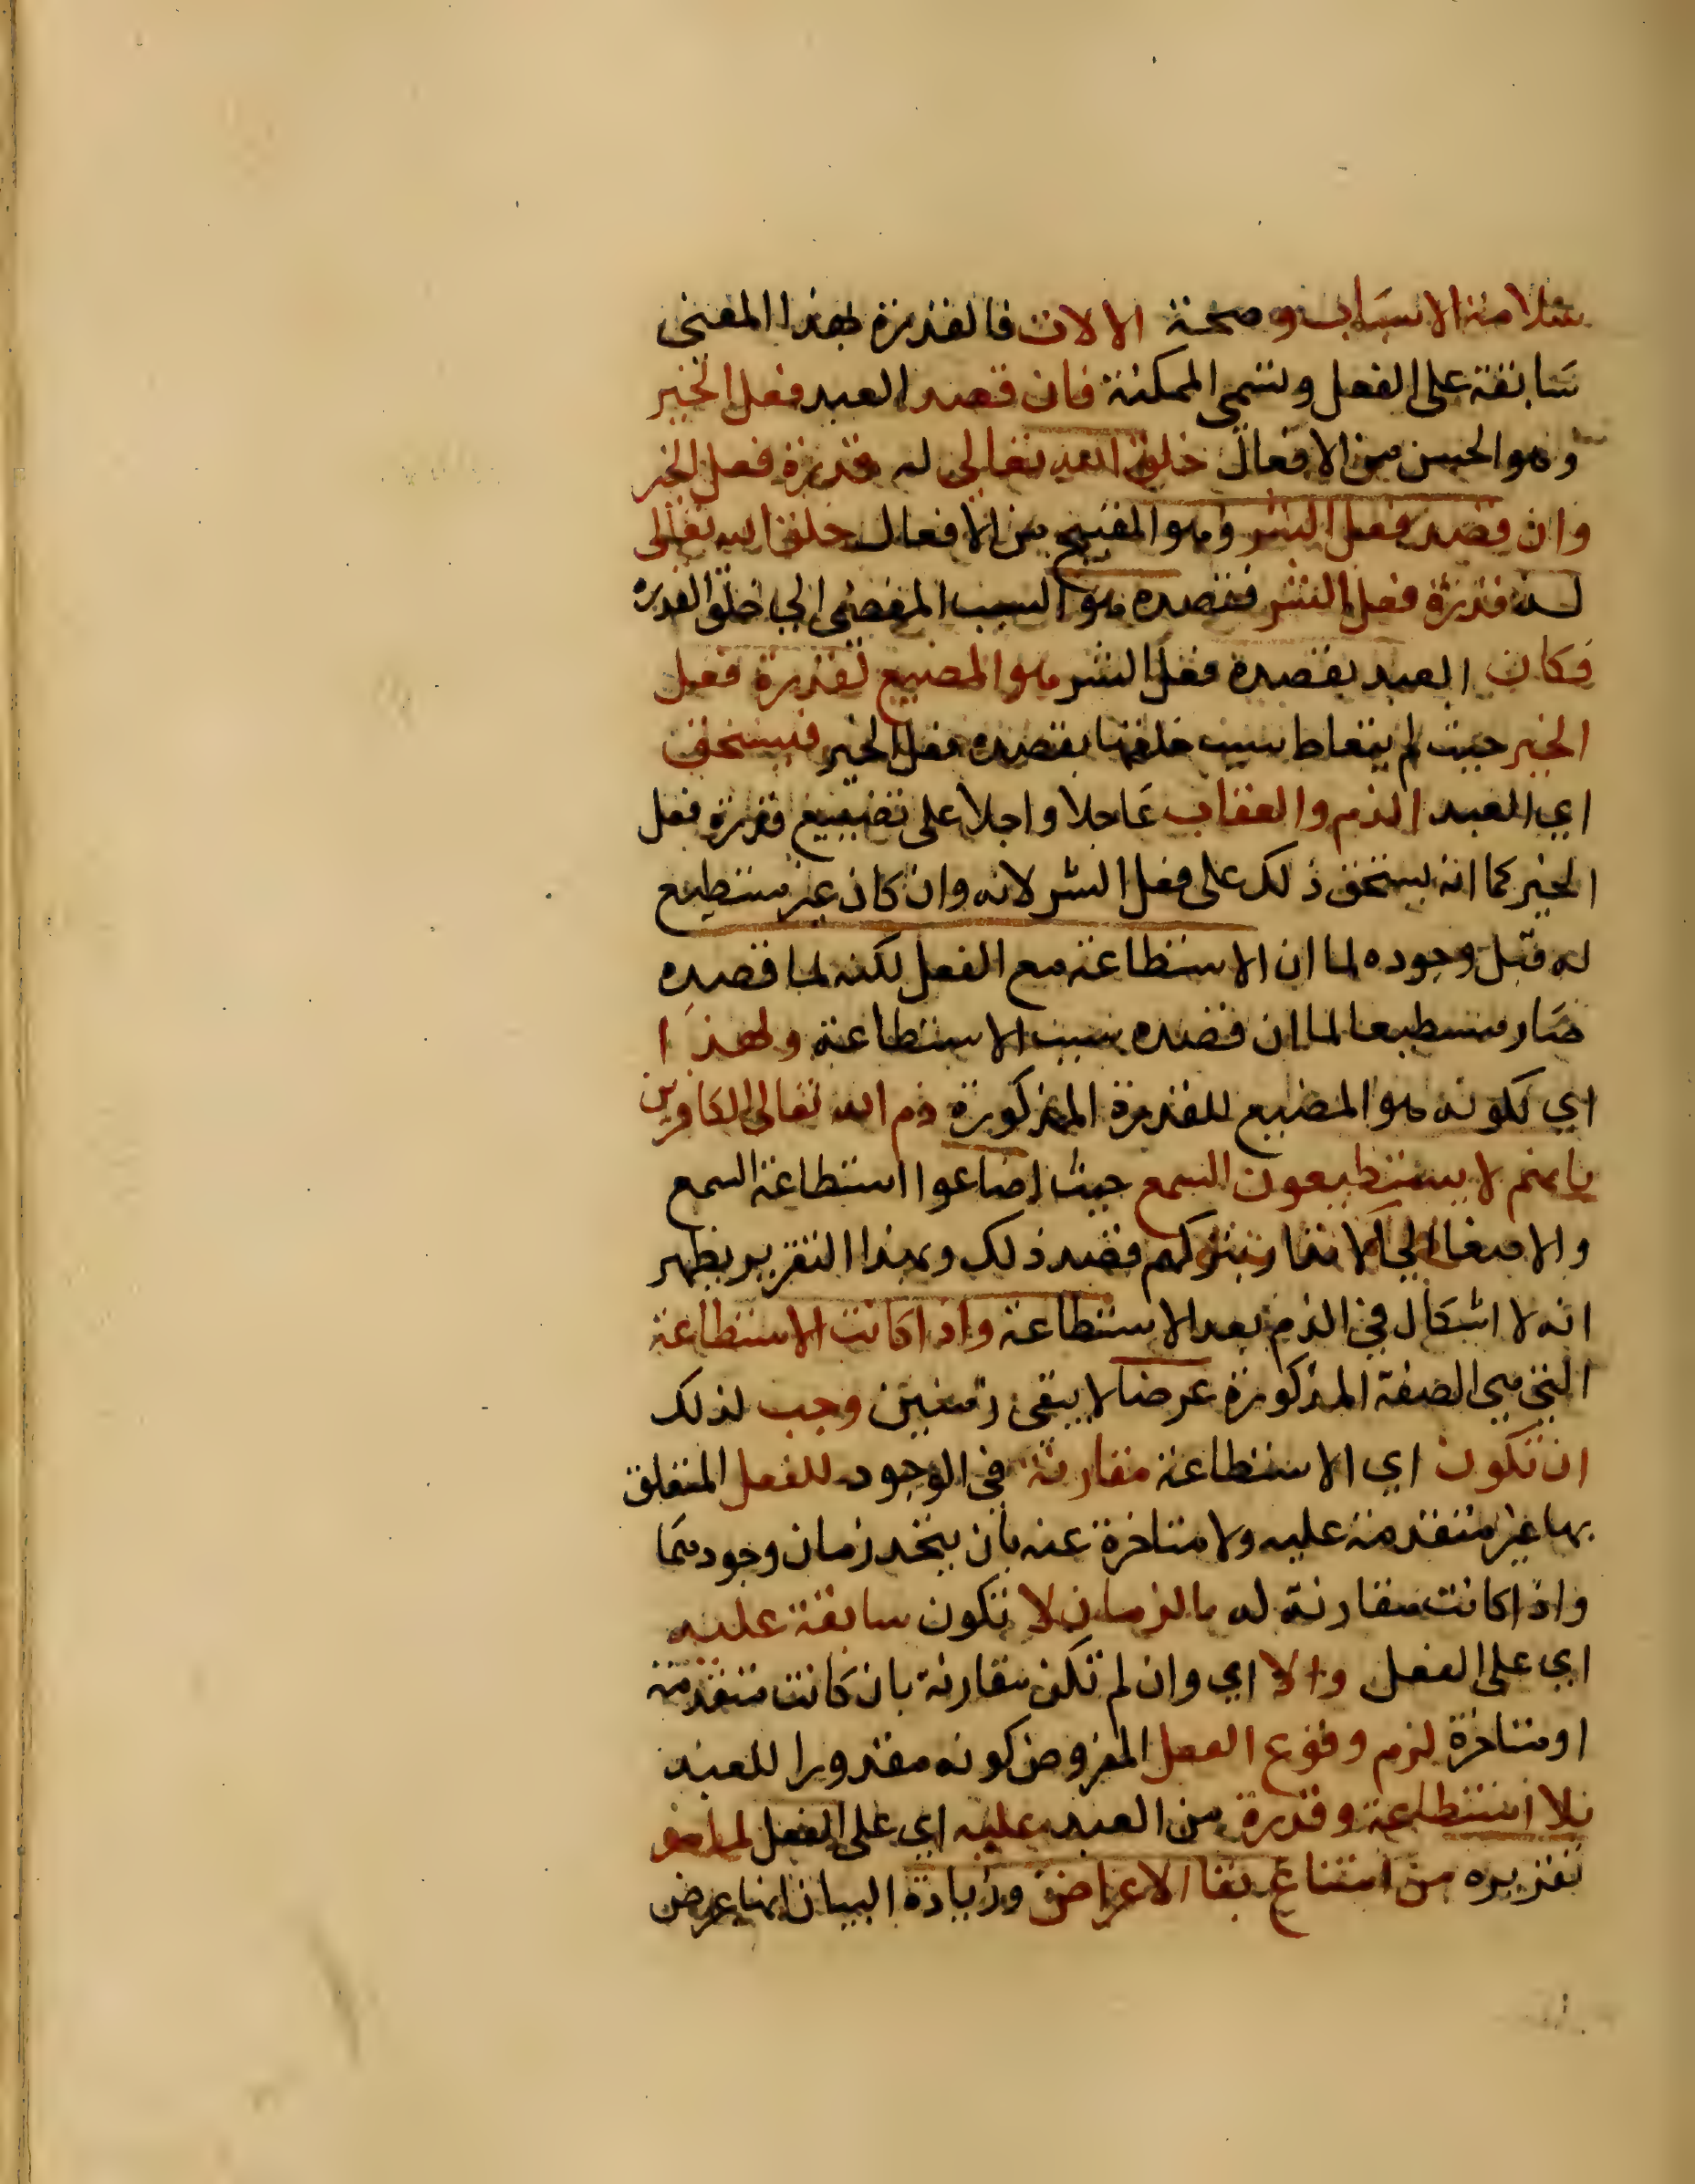 سلامة الاسباب وصحة الالات فالقدرة بهذا المعنى
سابقة على الفعل وتسمى الممكنة فان قصد العبد فعل الخير
وهو الحسن من الافعال خلق الله تعالى له قدرة فعل الخير
وان قصد فعل الشر وهو القبيح من الافعال خلق الله تعالى
له قدرة فعل الشر فقصده هو السبب المفضي الى خلق القدرة
فكان العبد بقصده فعل الشر هو المضيع لقدرة فعل
الخير حيث لم يتعاط سبب خلقها بقصده فعل الخير فيستحق
اي العبد الذم والعقاب عاجلا واجلا على تضييع قدرة فعل
الخير كما انه يستحق ذلك على فعل الشر لانه وان كان غير مستطيع
له قبل وجوده لما ان الاستطاعة مع الفعل لكنه لما قصده
صار مستطيعا لما ان قصده سبب الاستطاعة ولهذا
اي لكونه هو المضيع للقدرة المذكورة ذم الله تعالى الكافرين
بانهم لا يستطيعون السمع حيث اضاعوا استطاعة السمع
والاصغا الى الانذار بتركهم قصد ذلك وبهذا التقرير يظهر
انه لا اشكال في الذم بعد الاستطاعة واذا كانت الاستطاعة
التي هي الصفة المذكورة عرضا لا يبقى زمنين وجب لذلك
ان تكون اي الاستطاعة مقارنة في الوجود للفعل المتعلق
بها غير متقدمة عليه ولا متاخرة عنه بان يتحد زمان وجودهما
واذا كانت مقارنة له بالزمان لا تكون سابقة عليه
اي على الفعل والا اي وان لم تكن مقارنة بان كانت متقدمة
او متاخرة لزم وقوع الفعل المفروض كونه مقدورا للعبد
بلا استطاعة وقدرة من العبد عليه اي على الفعل لما مر
تقريره من امتناع بقا الاعراض وزيادة البيان انها عرض